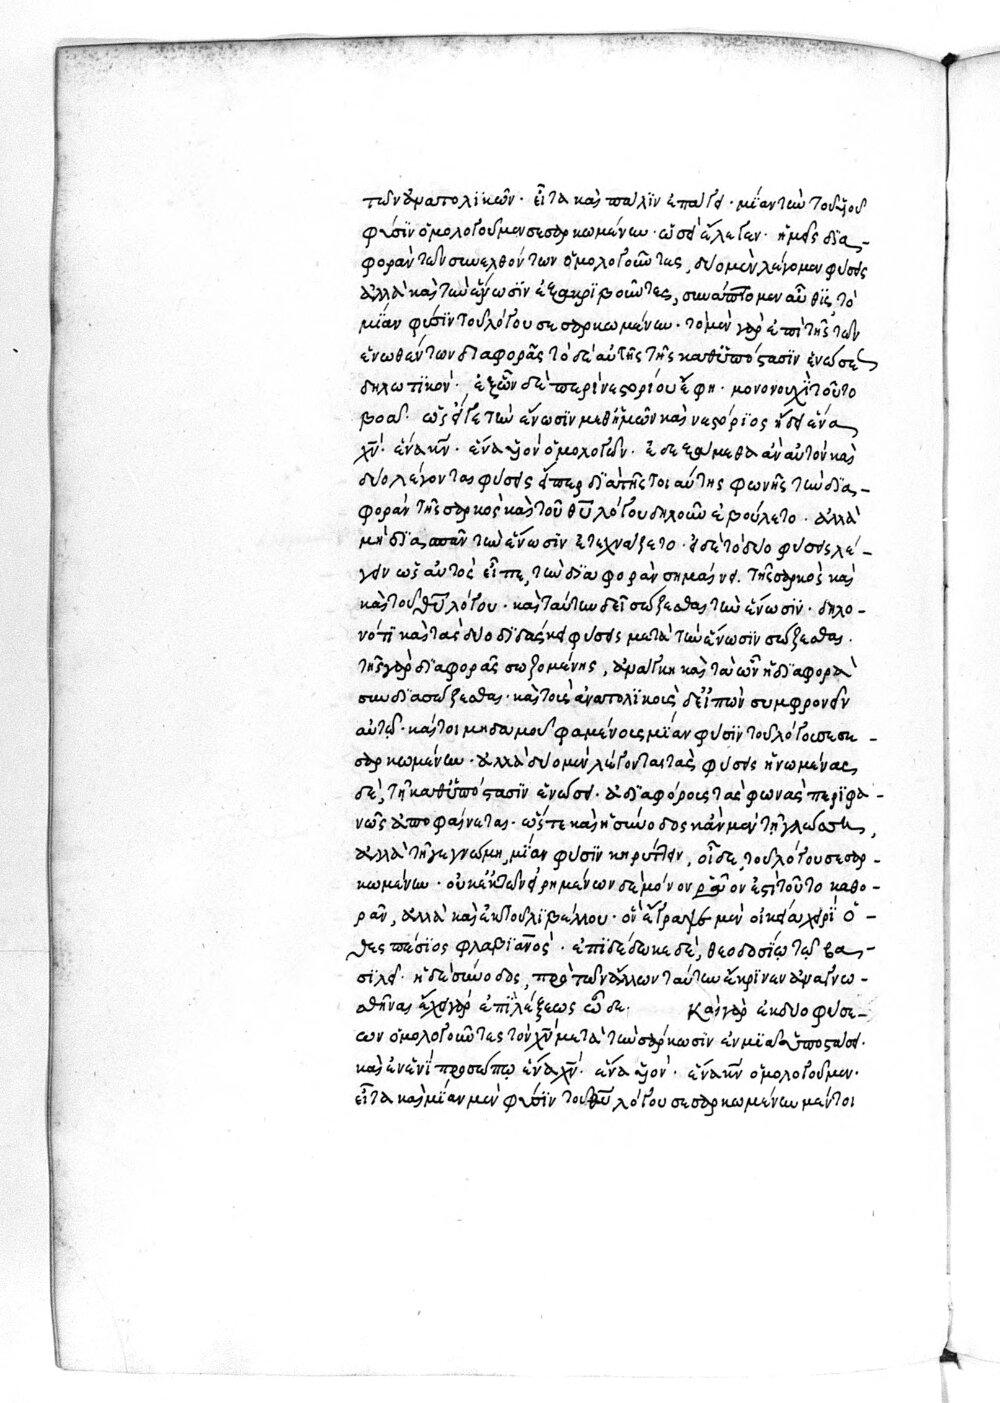 τῶν ἀνατολικῶν· εἶτα καὶ πάλιν ἐπάγει· μίαν τὴν τοῦ υἱοῦ
φύσιν ὁμολογοῦμεν σεσαρκωμένην· ὡσεὶ ἔλεγεν· ἡμεῖς δια-
φορὰν τῶν συνελθόντων ὁμολογοῦντες, δύο μὲν λέγομεν φύσεις
ἀλλὰ καὶ τὴν ἕνωσιν ἐξακριβοῦντες, συνάπτομεν αὖθις τὸ
μίαν φύσιν τοῦ λόγου σεσαρκωμένην· τὸ μὲν γὰρ ἐπὶ τῆς τῶν
ἑνωθέντων διαφορᾶς τὸ δὲ αὐτῆς τῆς καθ' ὑπόστασιν ἑνώσεως
δηλωτικόν· ἐξ ὧν δὲ περὶ νεστορίου ἔφη· μονονουχὶ τοῦτο
βοᾷ· ὡς εἴγε τὴν ἕνωσιν μεθ' ἡμῶν καὶ νεστόριος ᾔδει ἕνα
χν· ἕνα κν· ἕνα υἱὸν ὁμολογῶν· ἐδεξάμεθα ἂν αὐτὸν καὶ
δύο λέγοντα φύσεις εἴπερ διὰ τῆς τοιαύτης φωνῆς τὴν δια-
φορὰν τῆς σαρκὸς καὶ τοῦ θυ λόγου δηλοῦν ἐβούλετο· ἀλλὰ
μὴ διασπᾶν τὴν ἕνωσιν ἐτεχνάζετο· εἰ δὲ τὸ δύο φύσεις λέ-
γειν ὡς αὐτὸς εἶπε, τὴν διαφορὰν σημαίνει τῆς σαρκὸς καὶ
καὶ τοῦ θυ λόγου· καὶ ταύτην δεῖ σώζεσθαι τὴν ἕνωσιν· δηλο-
νότι καὶ τὰς δύο διδάσκει φύσεις μετὰ τὴν ἕνωσιν σώζεσθαι·
τῆς γὰρ διαφορᾶς σωζομένης, ἀνάγκη καὶ τὰ ὧν ἡ διαφορὰ
συνδιασώζεσθαι· καὶ τοὺς ἀνατολικοὺς δὲ εἰπὼν συμφρονεῖν
αὐτῷ· καίτοι μηδαμοῦ φαμένους μίαν φύσιν τοῦ λόγου σεσα-
σαρκωμένην· ἀλλὰ δύο μὲν λέγοντας τὰς φύσεις ἡνωμένας
δὲ, τῇ καθ' ὑπόστασιν ἑνώσει· ἀδιαφόρους τὰς φωνὰς περιφα-
νῶς ἀποφαίνεται· ὥστε καὶ ἡ σύνοδος κἂν μὲν τῇ γλώσσῃ,
ἀλλὰ τῇ γε γνώμῃ, μίαν φύσιν κηρύττειν, οἶδε, τοῦ λόγου σεσαρ-
κωμένην· οὐκ ἐκ τῶν εἰρημένων δὲ μόνον ῥᾴδιον ἐστὶ τοῦτο καθο-
ρᾶν, ἀλλὰ καὶ ἐκ τοῦ λιβέλλου· ὃν ἔγραψε μὲν οἰκείᾳ χειρὶ ὁ
θεσπέσιος φλαβιανός· ἐπιδέδωκε δὲ, θεοδοσίῳ τῷ βα-
σιλεῖ· ἡ δὲ σύνοδος, πρὸ τῶν ἄλλων ταύτην ἔκρινεν ἀναγνω-
σθῆναι ἔχει γὰρ ἐπὶ λέξεως ὧδε· Καὶ γὰρ ἐκ δύο φύσε-
ων ὁμολογοῦντες τὸν χν μετὰ τὴν σάρκωσιν ἐν μιᾷ ὑποστάσει·
καὶ ἐν ἑνὶ προσώπῳ ἕνα χν· ἕνα υἱόν· ἕνα κν ὁμολογοῦμεν·
εἶτα καὶ μίαν μὲν φύσιν τοῦ θυ λόγου σεσαρκωμένην μέντοι